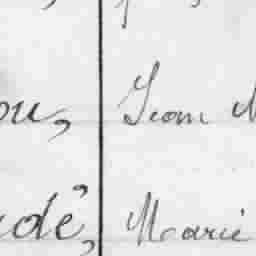 ou, Jean M
dé, Marie